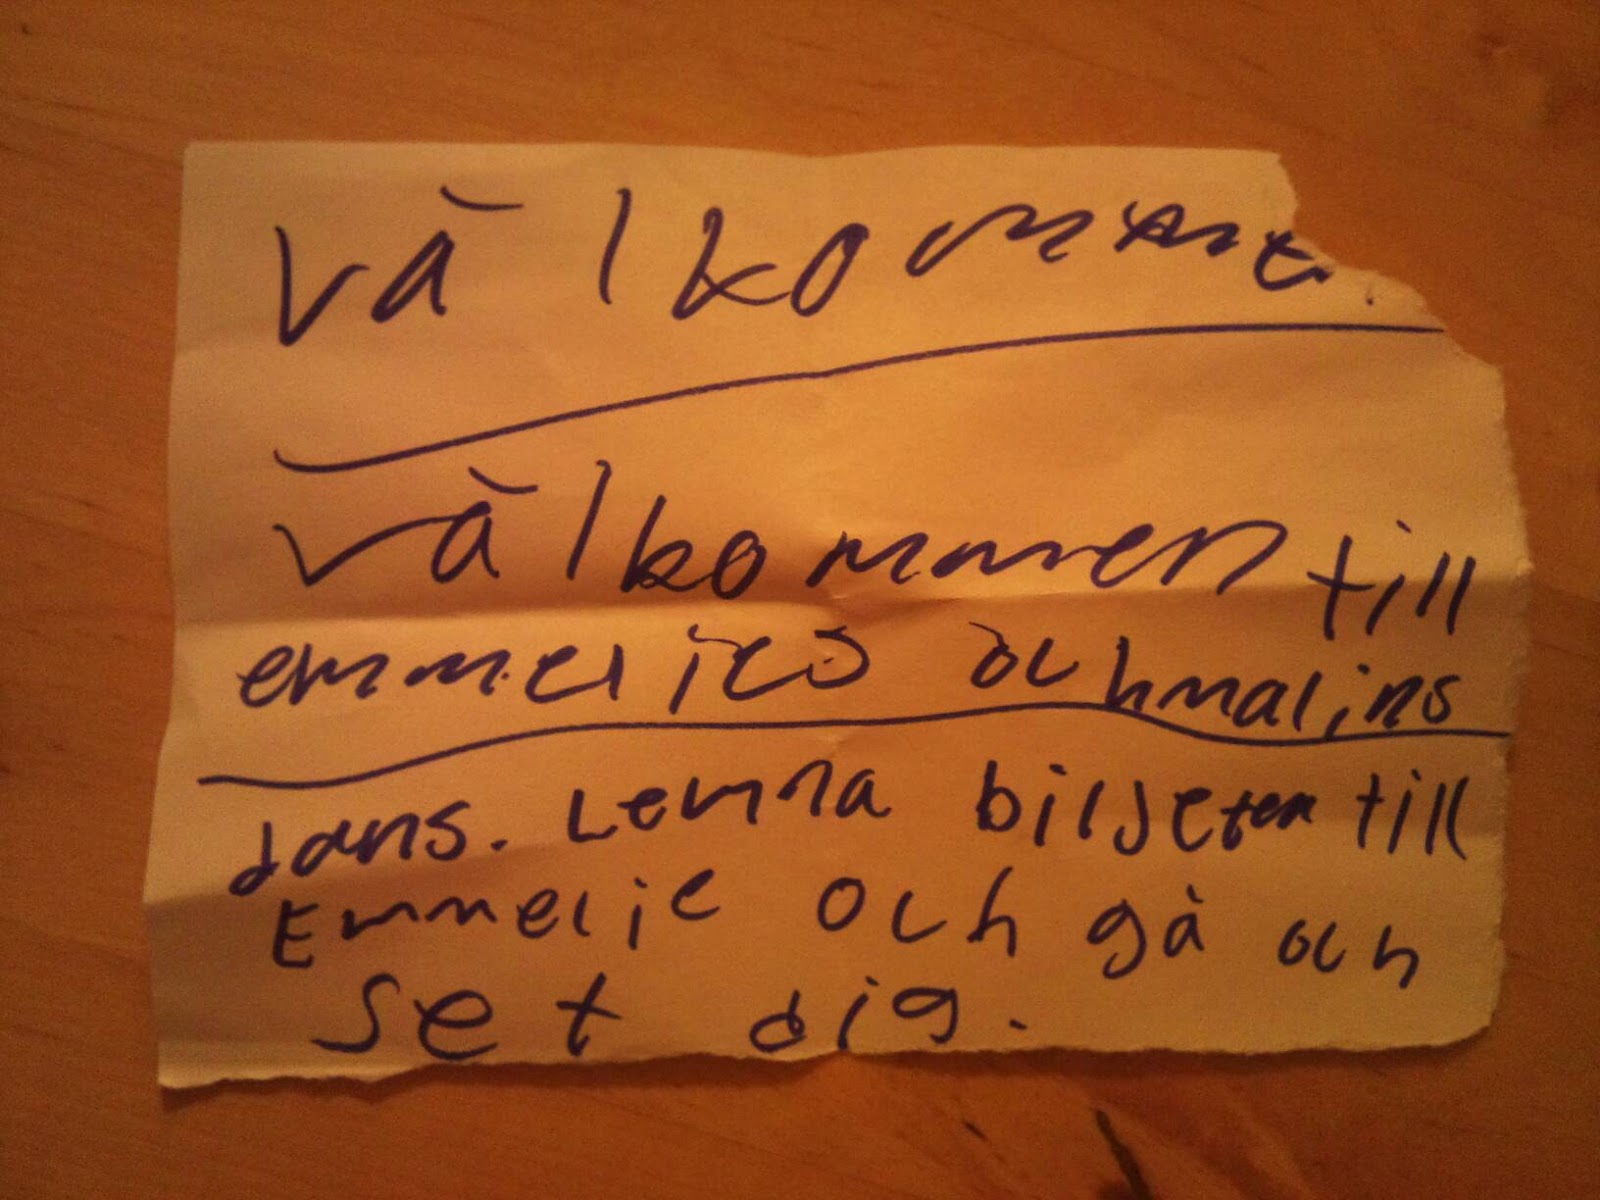 välkomme
välkommen till
emmelies och malins
dans. Lemna biljeten till
Emmelie och gå och
set dig.